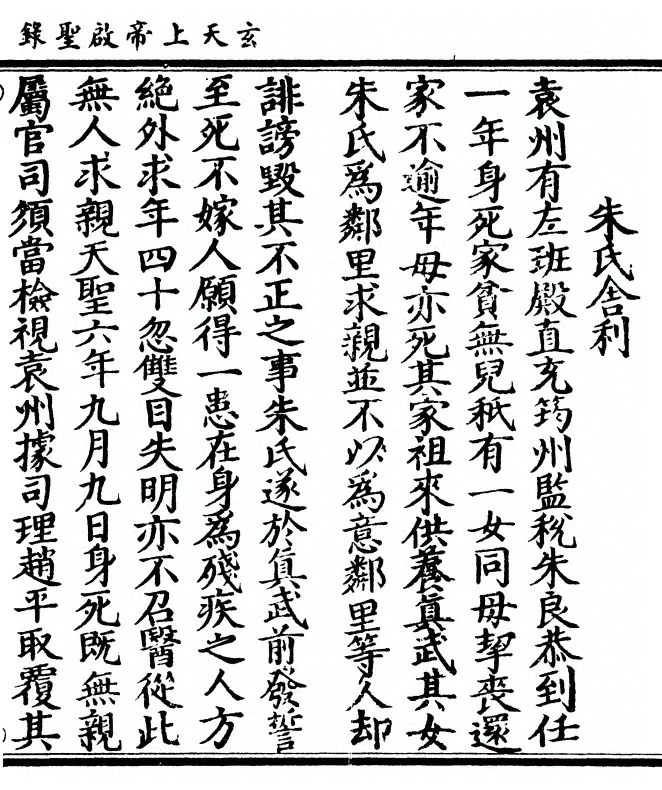 玄天上帝啟聖錄
朱氏舍利
袁州有左班殿直充筠州監稅朱良恭到任
一年身死家貧無兒秖有一女同母挈喪還
家不逾年母亦死其家祖來供養真武其女
朱氏為鄰里求親並不以為意鄰里等人却
誹謗毀其不正之事朱氏遂於真武前發誓
至死不嫁人願得一患在身為殘疾之人方
絕外求年四十忽雙目失明亦不召醫從此
無人求親天聖六年九月九日身死既無親
屬官司須當檢視袁州據司理趙平取覆其